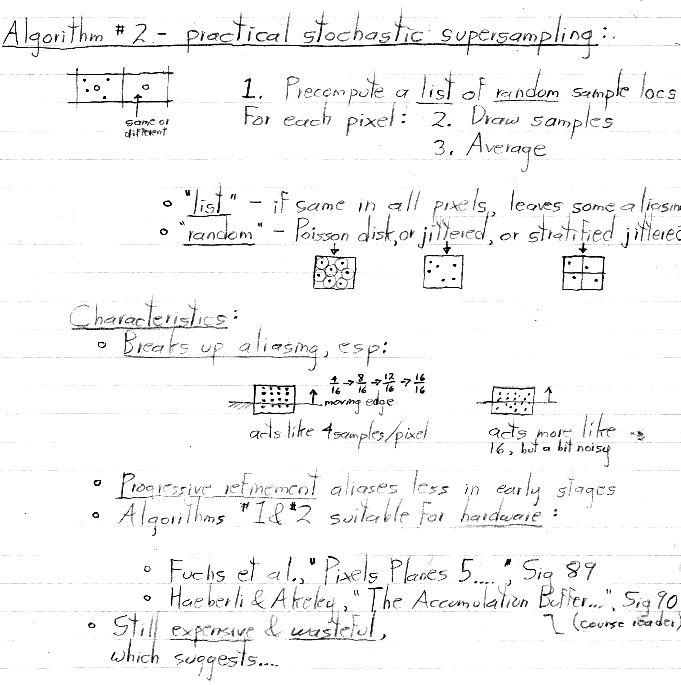 Algorithm #2 - practical stochastic supersampling:.
1. Precompute a list of random sample locs
same or
different
For each pixel: 2. Draw samples
3. Average
"list" - if same in all pixels, leaves some aliasin
"random" - Poisson disk, or jittered, or stratified jittered
Characteristics:
Breaks up aliasing, esp:
4/16 → 8/16 → 12/16 → 16/16
moving edge
acts like 4 samples/pixel
acts more like
16, but a bit noisy
Progressive refinement aliases less in early stages
Algorithms #1 & #2 suitable for hardware:
Fuchs et al., "Pixels Planes 5....", Sig 89
Haeberli & Akeley, "The Accumulation Buffer...", Sig 90
(course reader)
Still expensive & wasteful,
which suggests....